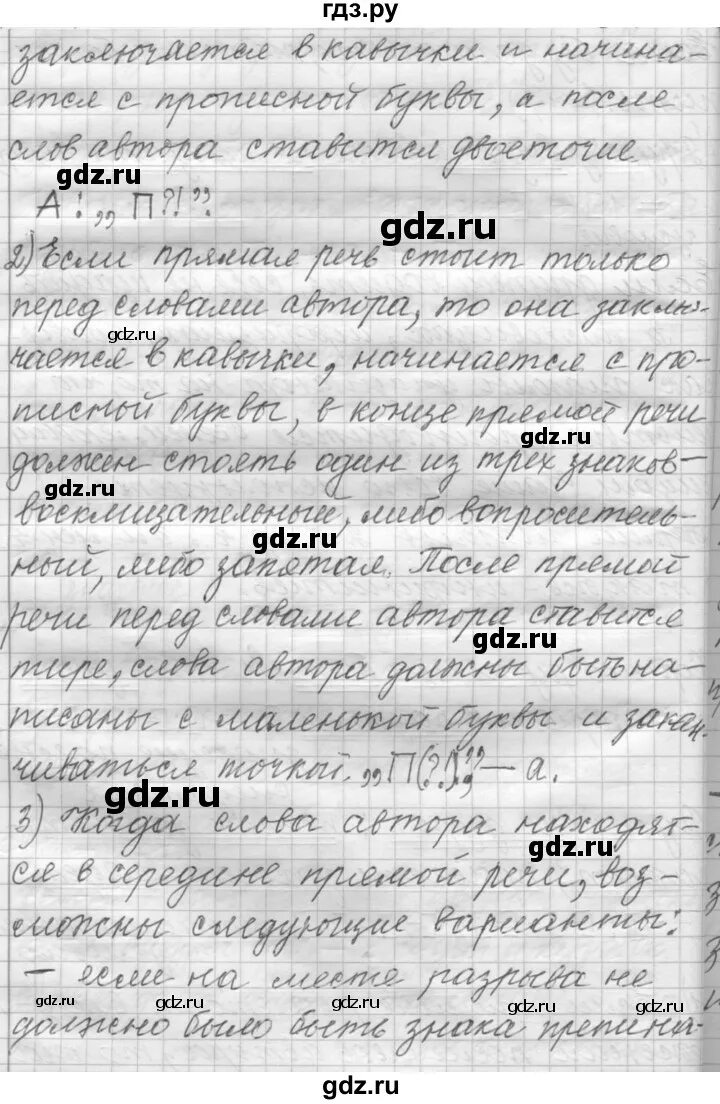 гдз.ру
заключается в кавычки и начина-
ется с прописной буквы, а после
слов автора ставится двоеточие
gdz.ru
А: „П?!”
gdz.ru
2) Если прямая речь стоит только
перед словами автора, то она заклю-
gdz.ru
чается в кавычки, начинается с про-
писной буквы, в конце прямой речи
gdz.ru
должен стоять один из трех знаков-
gdz.ru
восклицательный, либо вопроситель-
gdz.ru
ный, либо запятая. После прямой
речи перед словами автора ставится
gdz.ru
тире, слова автора должны быть на-
писаны с маленькой буквы и закан-
чиваться точкой. „П(?!)”, – а.
gdz.ru
3) Когда слова автора находят-
gdz.ru
ся в середине прямой речи, воз-
можны следующие варианты:
– если на месте разрыва не
gdz.ru gdz.ru gdz.ru gdz.ru
должно было быть знака препина-
gdz.ru